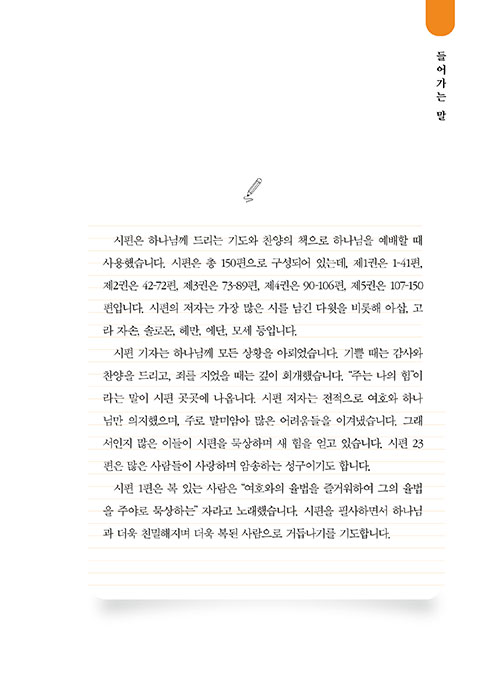 들어가는 말
시편은 하나님께 드리는 기도와 찬양의 책으로 하나님을 예배할 때
사용했습니다. 시편은 총 150편으로 구성되어 있는데, 제1권은 1-41편,
제2권은 42-72편, 제3권은 73-89편, 제4권은 90-106편, 제5권은 107-150
편입니다. 시편의 저자는 가장 많은 시를 남긴 다윗을 비롯해 아삽, 고
라 자손, 솔로몬, 헤만, 에단, 모세 등입니다.
시편 기자는 하나님께 모든 상황을 아뢰었습니다. 기쁠 때는 감사와
찬양을 드리고, 죄를 지었을 때는 깊이 회개했습니다. "주는 나의 힘"이
라는 말이 시편 곳곳에 나옵니다. 시편 저자는 전적으로 여호와 하나
님만 의지했으며, 주로 말미암아 많은 어려움들을 이겨냈습니다. 그래
서인지 많은 이들이 시편을 묵상하며 새 힘을 얻고 있습니다. 시편 23
편은 많은 사람들이 사랑하며 암송하는 성구이기도 합니다.
시편 1편은 복 있는 사람은 "여호와의 율법을 즐거워하여 그의 율법
을 주야로 묵상하는" 자라고 노래했습니다. 시편을 필사하면서 하나님
과 더욱 친밀해지며 더욱 복된 사람으로 거듭나기를 기도합니다.